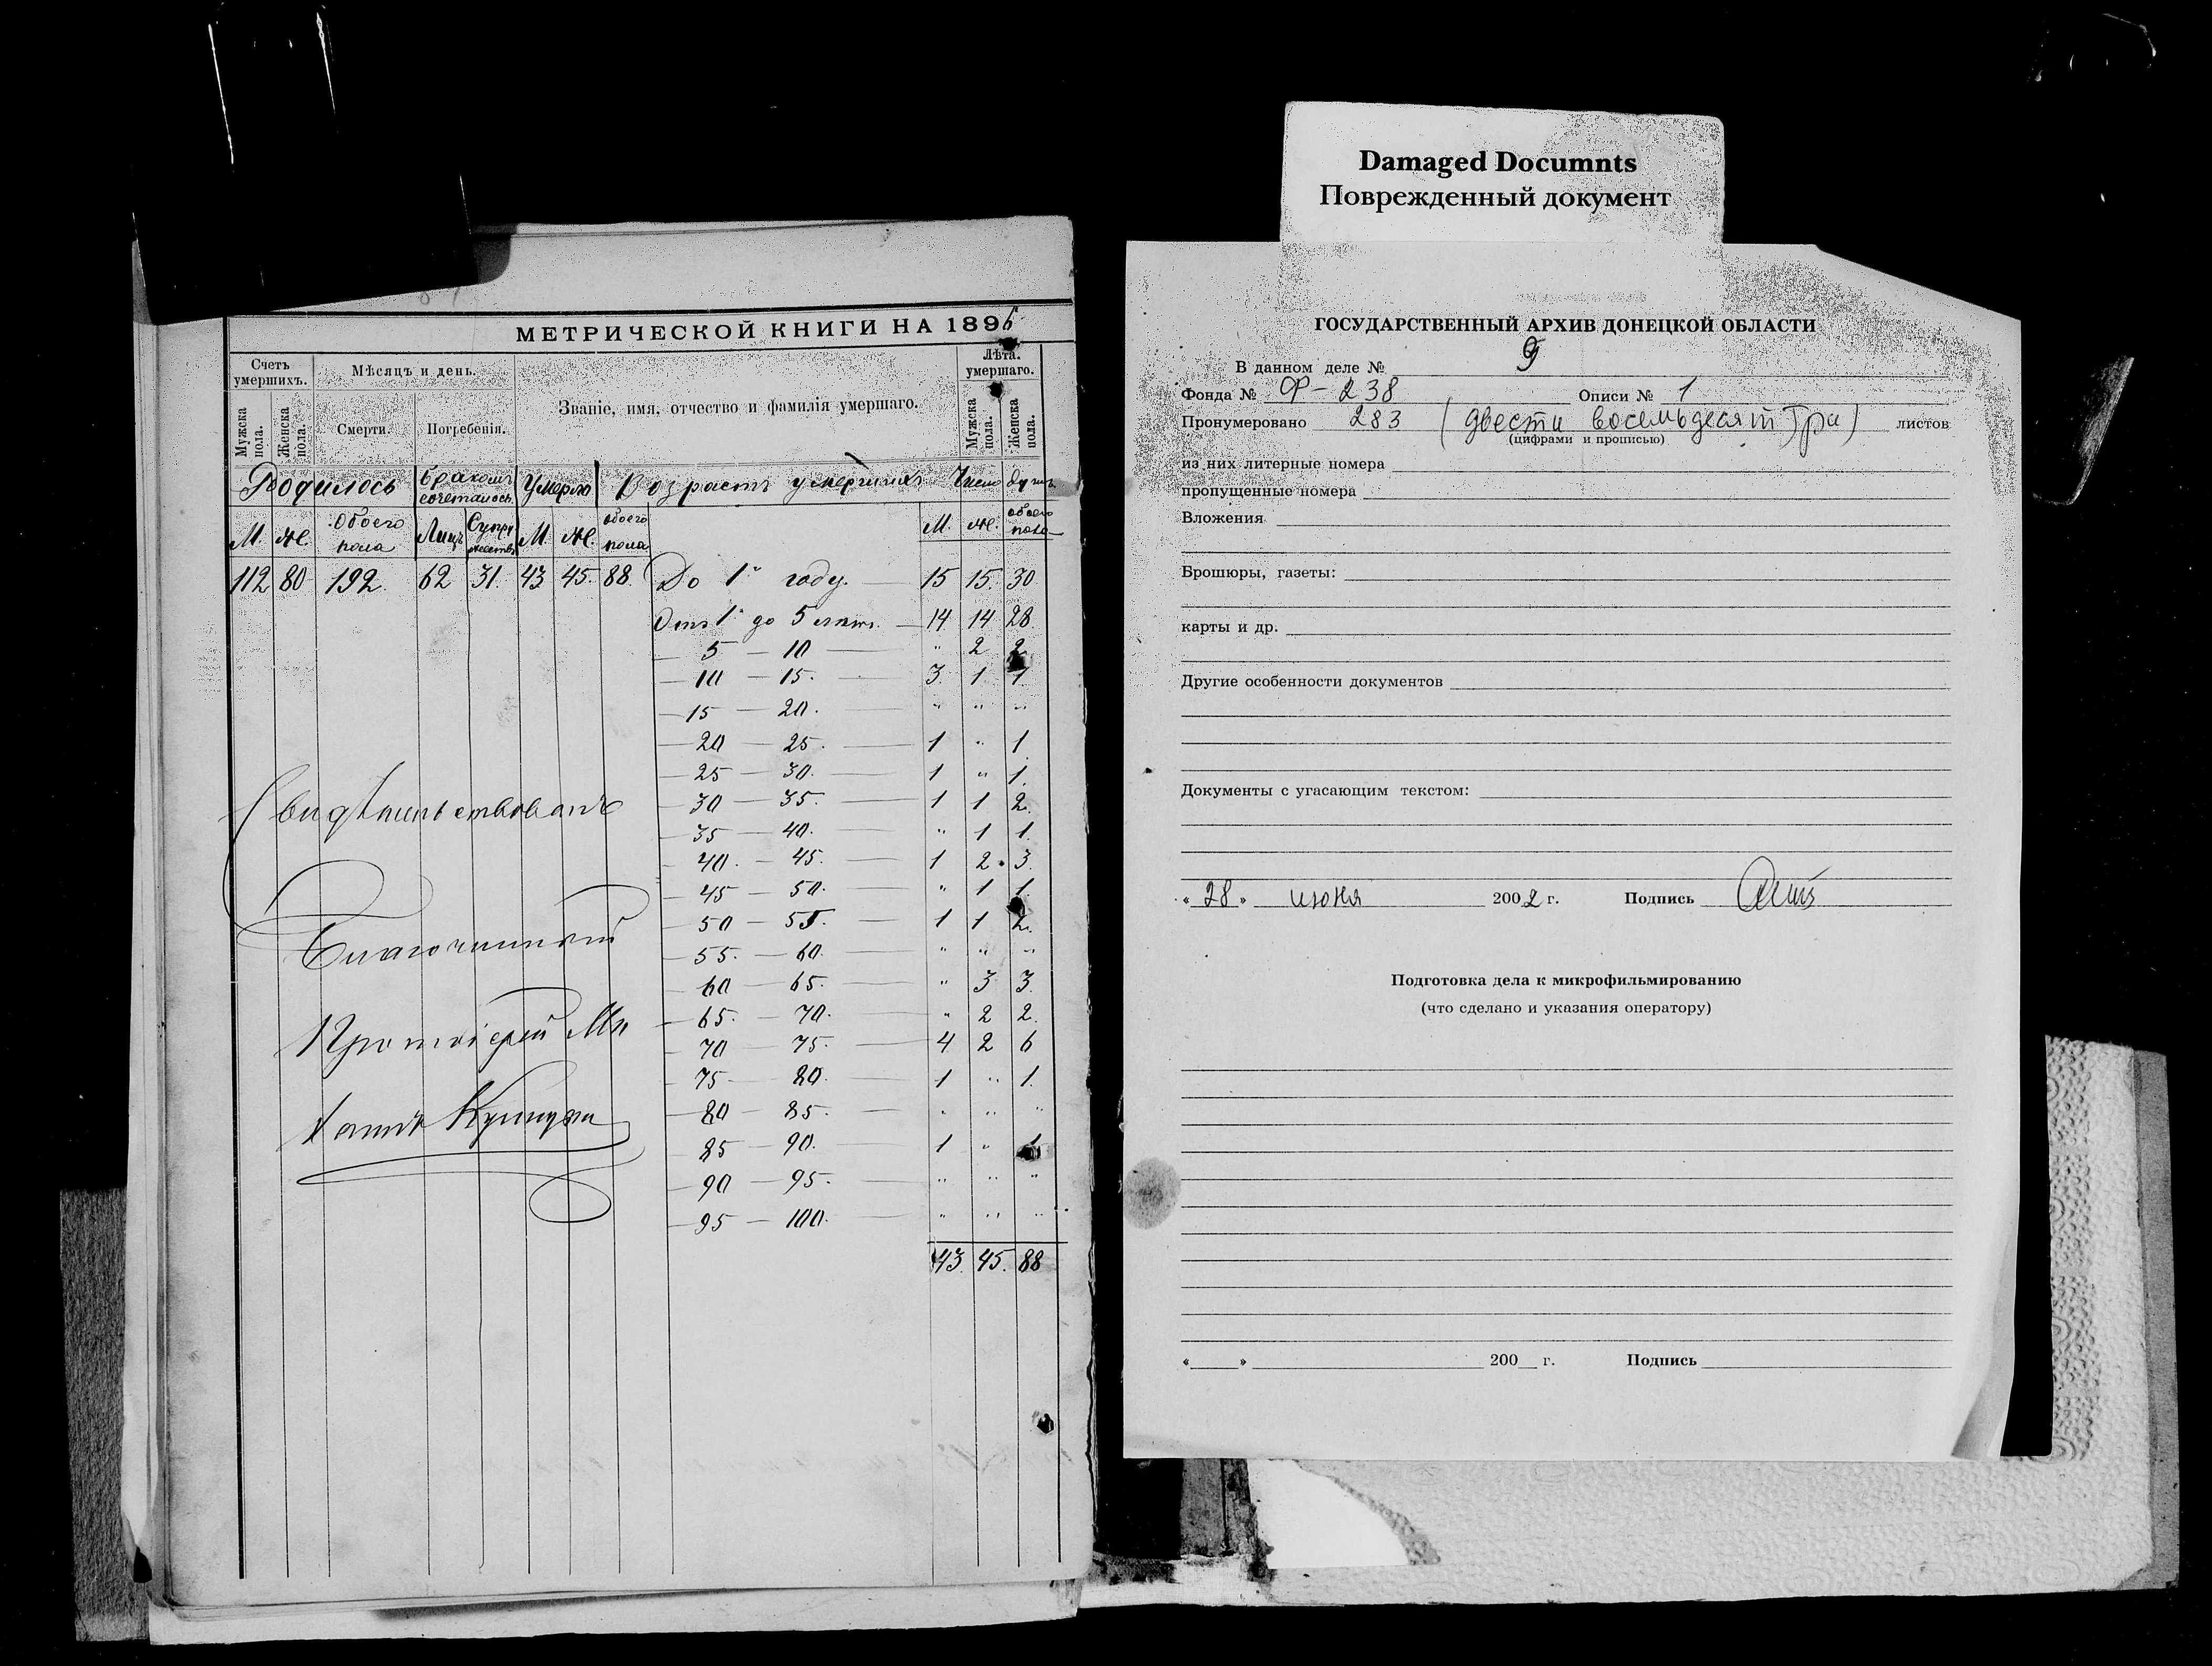 МЕТРИЧЕСКОЙ КНИГИ НА 1896
Счетъ умершихъ.
Мѣсяцъ и день.
Званіе, имя, отчество и фамилія умершаго.
Лѣта. умершаго.
Мужска пола.
Женска пола.
Смерти.
Погребенія.
Мужска пола.
Женска пола.
Родилось бракомъ сочеталось Умерло Возрастъ умершихъ Число душъ
М. Же. Обоего пола Лицъ Супружествъ М. Же. обоего пола М. Же. обоего пола
112 80 192. 62 31. 43 45. 88. До 1го году. — 15 15. 30
Отъ 1го до 5 лѣтъ. — 14 14 28
— 5 — 10 — " 2 2
— 10 — 15. — 3. 1 1
— 15 — 20. — " " "
— 20 — 25. — 1 " 1
— 25 — 30. — 1 " 1.
— 30 — 35. — 1 1 2.
— 35 — 40. — " 1 1.
— 40. — 45. — 1 2. 3.
— 45 — 50. — " 1 1.
— 50 — 55. — 1 1 2.
— 55. — 60. — " " "
— 60 — 65. — " 3 3.
— 65. — 70. — " 2 2.
— 70 — 75. — 4 2 6
— 75 — 80. — 1 " 1.
— 80 — 85. — " " "
— 85 — 90. — 1 " 1
— 90 — 95. — " " "
— 95 — 100. — " " "
43. 45. 88
Свидѣтельствовалъ
Благочинный
Протоіерей
Damaged Documnts
Поврежденный документ
ГОСУДАРСТВЕННЫЙ АРХИВ ДОНЕЦКОЙ ОБЛАСТИ
В данном деле № 9
Фонда № Ф-238 Описи № 1
Пронумеровано 283 (двести восемьдесят три) листов
(цифрами и прописью)
из них литерные номера
пропущенные номера
Вложения
Брошюры, газеты:
карты и др.
Другие особенности документов
Документы с угасающим текстом:
« 28 » июня 2002 г. Подпись
Подготовка дела к микрофильмированию
(что сделано и указания оператору)
« » 200 г. Подпись